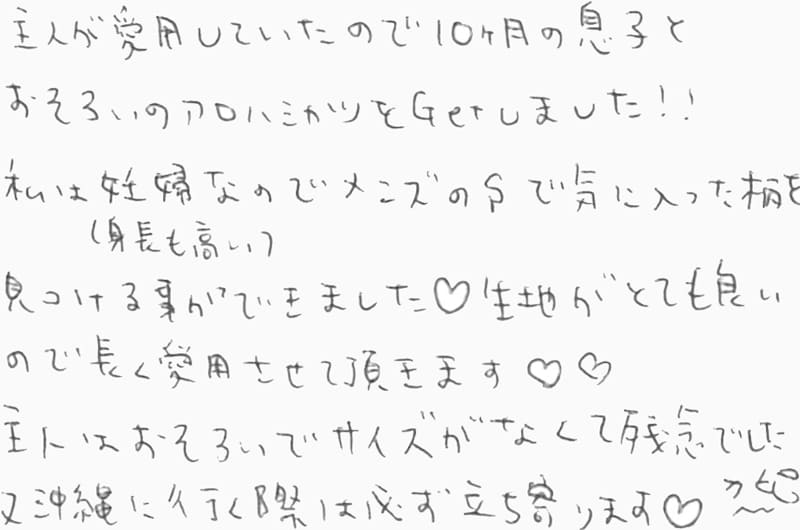 主人が愛用していたので10ヶ月の息子と
おそろいのアロハシャツをGetしました!!
私は妊婦なのでメンズのSで気に入った柄を
(身長も高い)
見つける事ができました♡生地がとても良い
ので長く愛用させて頂きます♡♡
主人はおそろいでサイズがなくて残念でした
又沖縄に行く際は必ず立ち寄ります♡